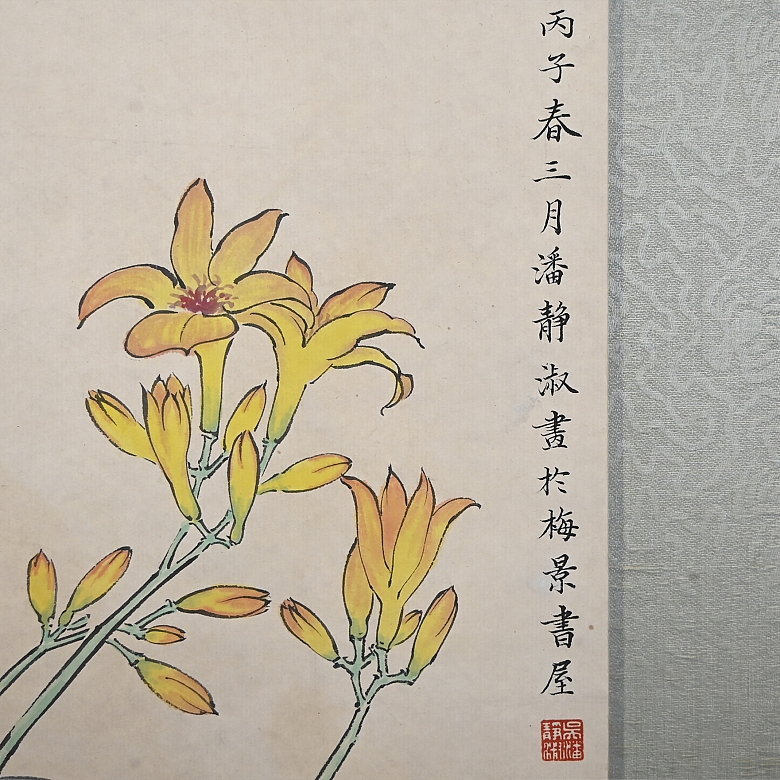 丙子春三月潘静淑畫於梅景書屋
吳潘
靜淑